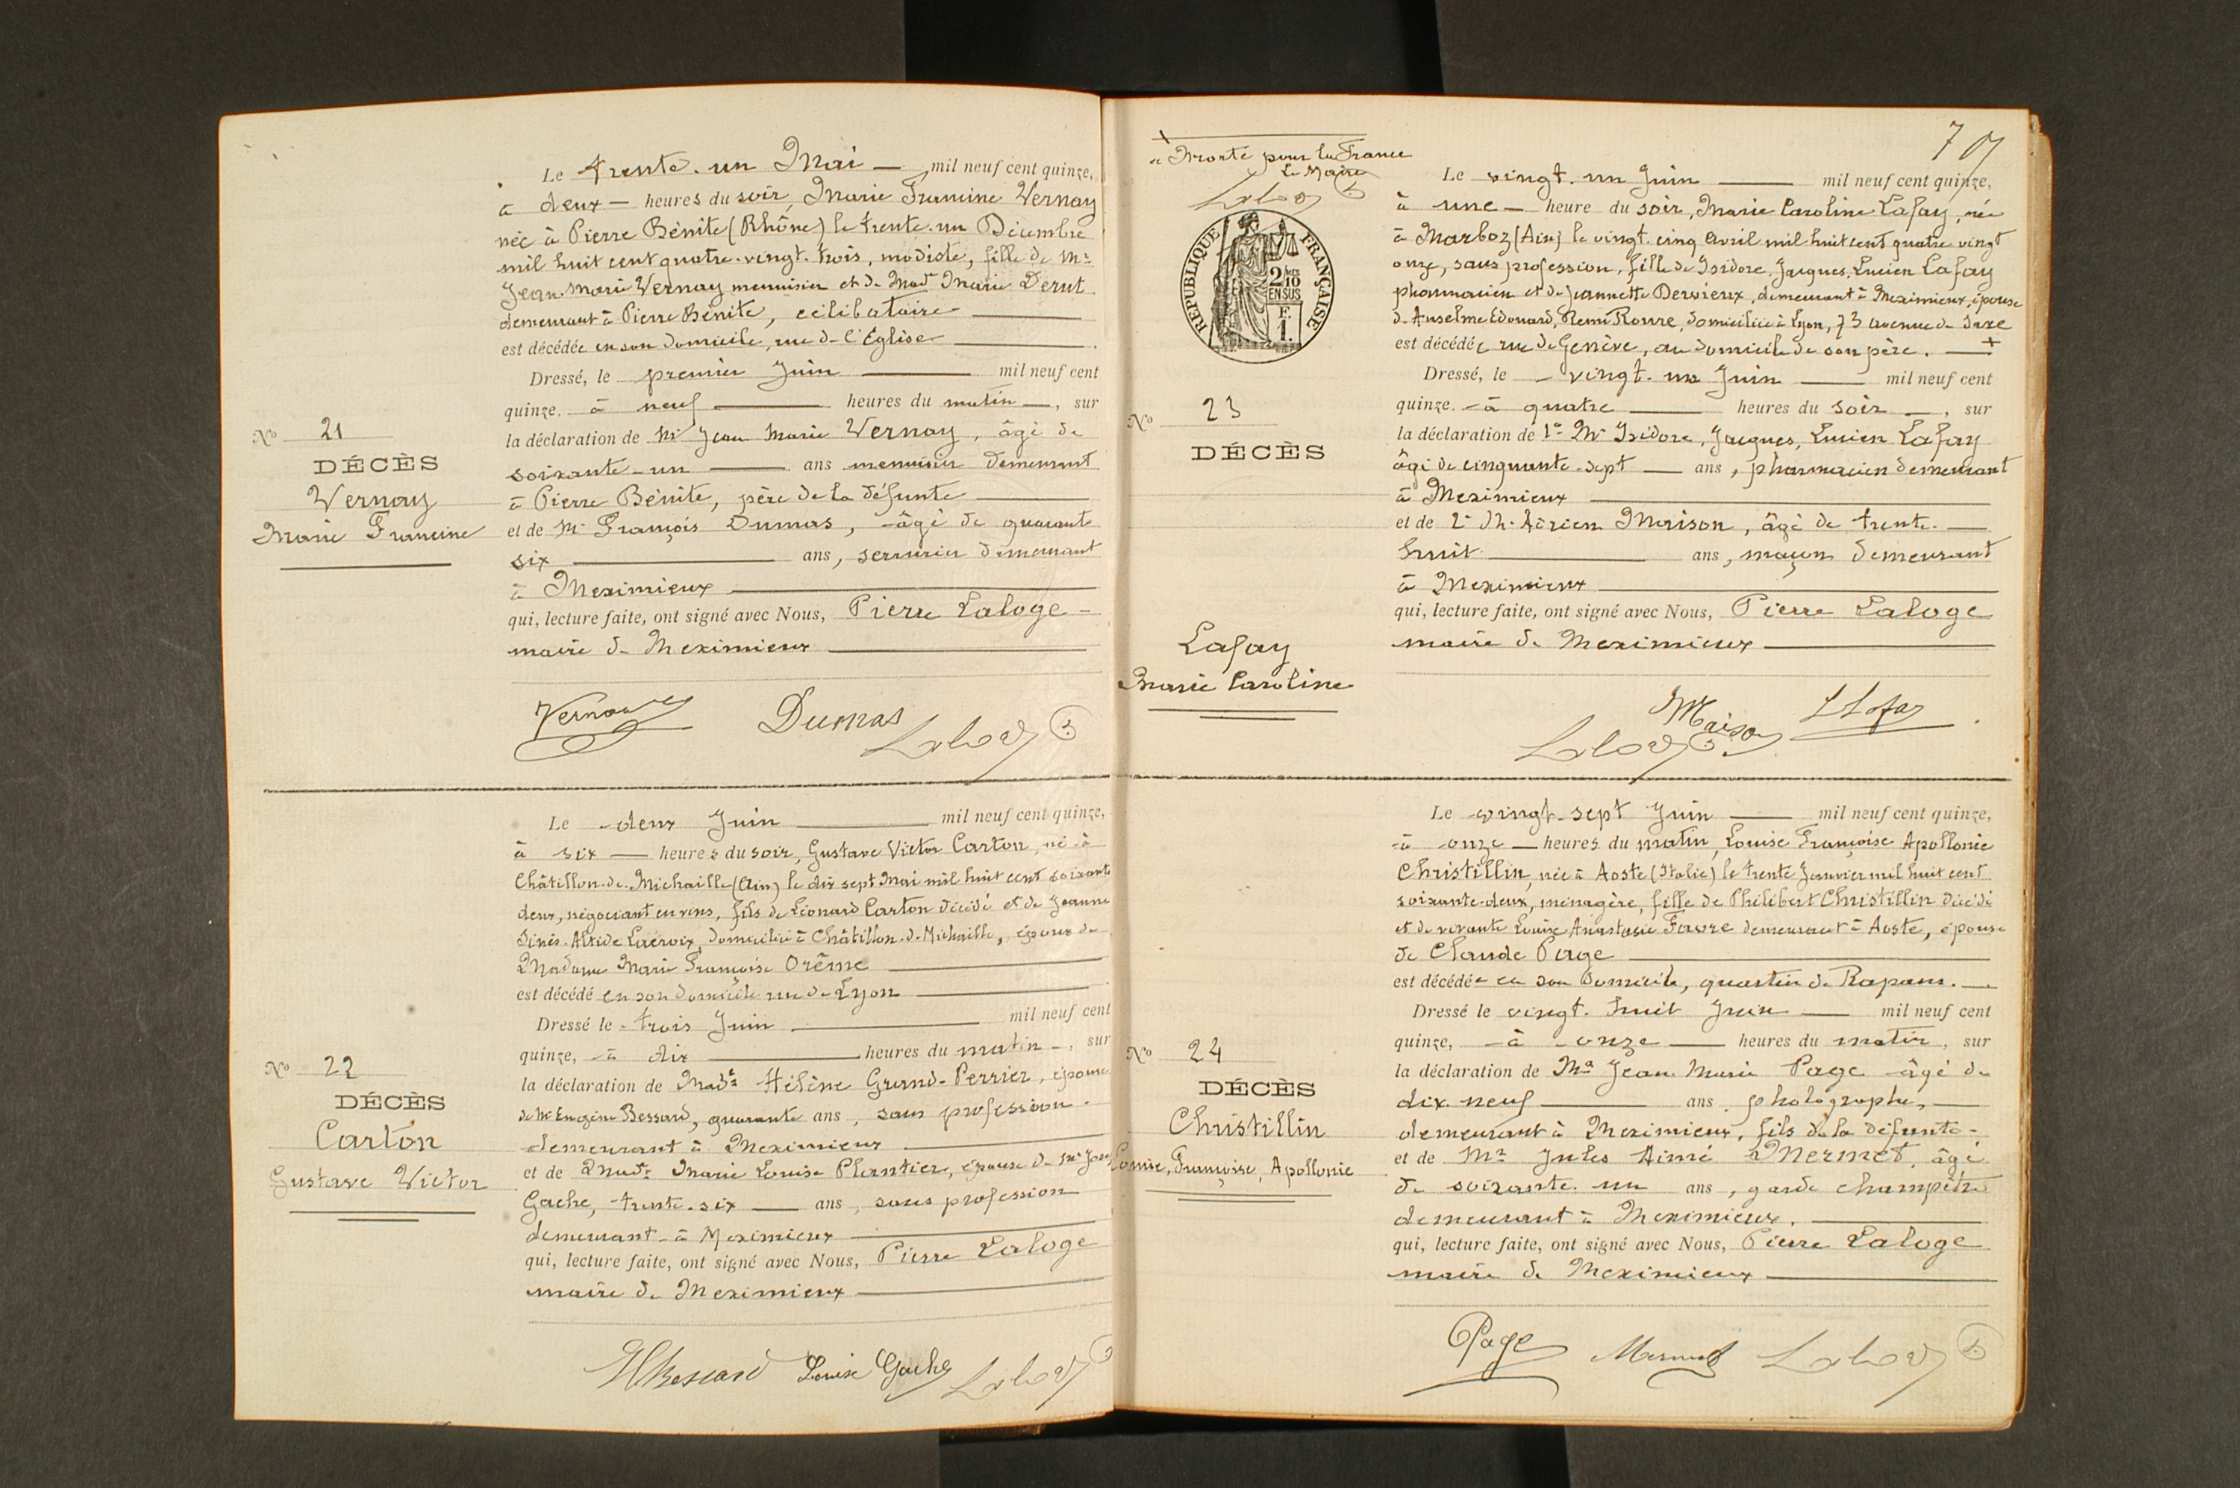 Le trente-un Mai mil neuf cent quinze,
à deux heures du soir, Marie Francine Vernay
née à Pierre Bénite (Rhône) le trente-un Décembre
mil huit cent quatre-vingt-trois, modiste, fille de Mr
Jean-Marie Vernay menuisier et de Made Marie Derut
demeurant à Pierre Bénite, célibataire
est décédée en son domicile, rue de l'Église
Dressé, le premier Juin mil neuf cent
quinze. à neuf heures du matin, sur
la déclaration de Mr Jean Marie Vernay, âgé de
soixante-un ans menuisier demeurant
à Pierre Bénite, père de la défunte
et de Mr François Dumas, âgé de quarante
six ans, serrurier demeurant
à Meximieux
qui, lecture faite, ont signé avec Nous, Pierre Laloge
maire de Meximieux
No 21
DÉCÈS
Vernay
Marie Francine
Vernay Dumas Laloge
Le deux Juin mil neuf cent quinze,
à six heures du soir, Gustave Victor Carton, né à
Châtillon-de-Michaille (Ain) le dix sept Mai mil huit cent soixante
deux, négociant en vins, fils de Léonard Carton décédé et de Jeanne
Lacroix, domiciliée à Châtillon-de-Michaille, époux de
Madame Marie Françoise Orême
est décédé en son domicile rue de Lyon
Dressé le trois Juin mil neuf cent
quinze, à dix heures du matin, sur
la déclaration de Made Hélène Grand-Perrier, épouse
de Mr Eugène Bessard, quarante ans, sans profession
demeurant à Meximieux
et de Made Marie Louise Plantier, épouse de Mr Jean
Gache, trente-six ans, sans profession
demeurant à Meximieux
qui, lecture faite, ont signé avec Nous, Pierre Laloge
maire de Meximieux
No 22
DÉCÈS
Carton
Gustave Victor
H Bessard Louise Gache Laloge
+
"Morte pour la France
Le Maire
Laloge
RÉPUBLIQUE FRANÇAISE
2/10
EN SUS
F.
1.
7
Le vingt-un Juin mil neuf cent quinze,
à une heure du soir, Marie Caroline Lafay, née
à Marboz (Ain) le vingt-cinq Avril mil huit cent quatre vingt
onze, sans profession, fille de Isidore, Jacques, Lucien Lafay
pharmacien et de Jeannette Dervieux, demeurant à Meximieux, épouse
de Anselme Edouard, Remi Roure, domiciliée à Lyon, 73 avenue de Saxe
est décédée rue de Genève, au domicile de son père. +
Dressé, le vingt-un Juin mil neuf cent
quinze. à quatre heures du soir, sur
la déclaration de 1° Mr Isidore, Jacques, Lucien Lafay
âgé de cinquante-sept ans, pharmacien demeurant
à Meximieux
et de 2° Mr Adrien Maison, âgé de trente-
huit ans, maçon demeurant
à Meximieux
qui, lecture faite, ont signé avec Nous, Pierre Laloge
maire de Meximieux
No 23
DÉCÈS
Lafay
Marie Caroline
Laloge Maison L Lafay
Le vingt-sept Juin mil neuf cent quinze,
à onze heures du matin, Louise Françoise Apollonie
Christillin, née à Aoste (Italie) le trente Janvier mil huit cent
soixante-deux, ménagère, fille de Philibert Christillin décédé
et de vivante Louise Anastasie Favre demeurant à Aoste, épouse
de Claude Page
est décédée en son domicile, quartier de Rapans.
Dressé le vingt-huit Juin mil neuf cent
quinze, à onze heures du matin, sur
la déclaration de Mr Jean Marie Page âgé de
dix-neuf ans, photographe,
demeurant à Meximieux, fils de la défunte
et de Mr Jules Aimé Mermet, âgé
de soixante-un ans, garde champêtre
demeurant à Meximieux.
qui, lecture faite, ont signé avec Nous, Pierre Laloge
maire de Meximieux
No 24
DÉCÈS
Christillin
Louise, Françoise, Apollonie
Page Mermet Laloge